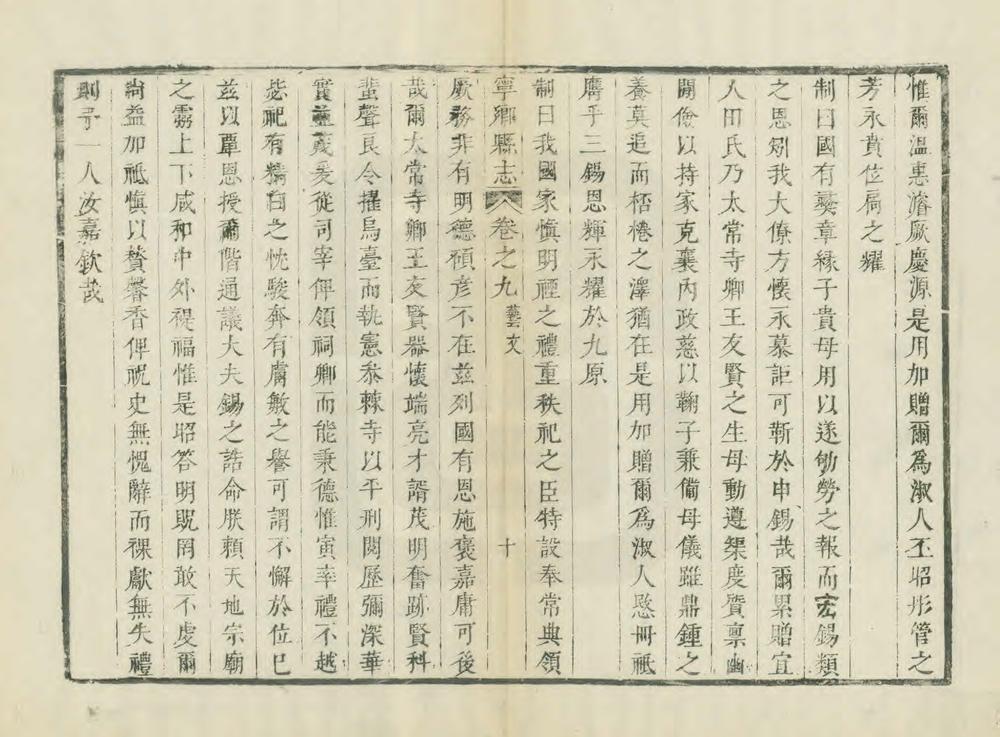 惟爾溫惠濬厥慶源是用加贈爾為淑人丕昭彤管之
芳永賁位扃之耀
制曰國有彝章緣子貴母用以遂劬勞之報而宏錫類
之恩矧我大僚方懷永慕詎可靳於申錫哉爾累贈宜
人田氏乃太常寺卿王友賢之生母動遵榘度質稟幽
閒儉以持家克襄內政慈以鞠子兼備母儀雖鼎鍾之
養莫追而桮棬之澤猶在是用加贈爾為淑人愍冊祗
膺乎三錫恩輝永耀於九原
制曰我國家慎明禋之禮重秩祀之臣特設奉常典領
寧鄉縣志 卷之九 藝文 十
厥務非有明德碩彥不在茲列國有恩施褒嘉庸可後
哉爾太常寺卿王友賢器懷端亮才諝茂明奮跡賢科
蜚聲良令擢烏臺而執憲叅棘寺以平刑閱歷彌深華
實並茂爰從司宰俾領祠卿而能秉德惟寅率禮不越
毖祀有精白之忱駿奔有膚敏之譽可謂不懈於位已
茲以覃恩授爾階通議大夫錫之誥命朕賴天地宗廟
之靈上下咸和中外禔福惟是昭答明貺罔敢不虔爾
尚益加祗慎以贊馨香俾祝史無愧辭而祼獻無失禮
則予一人汝嘉欽哉